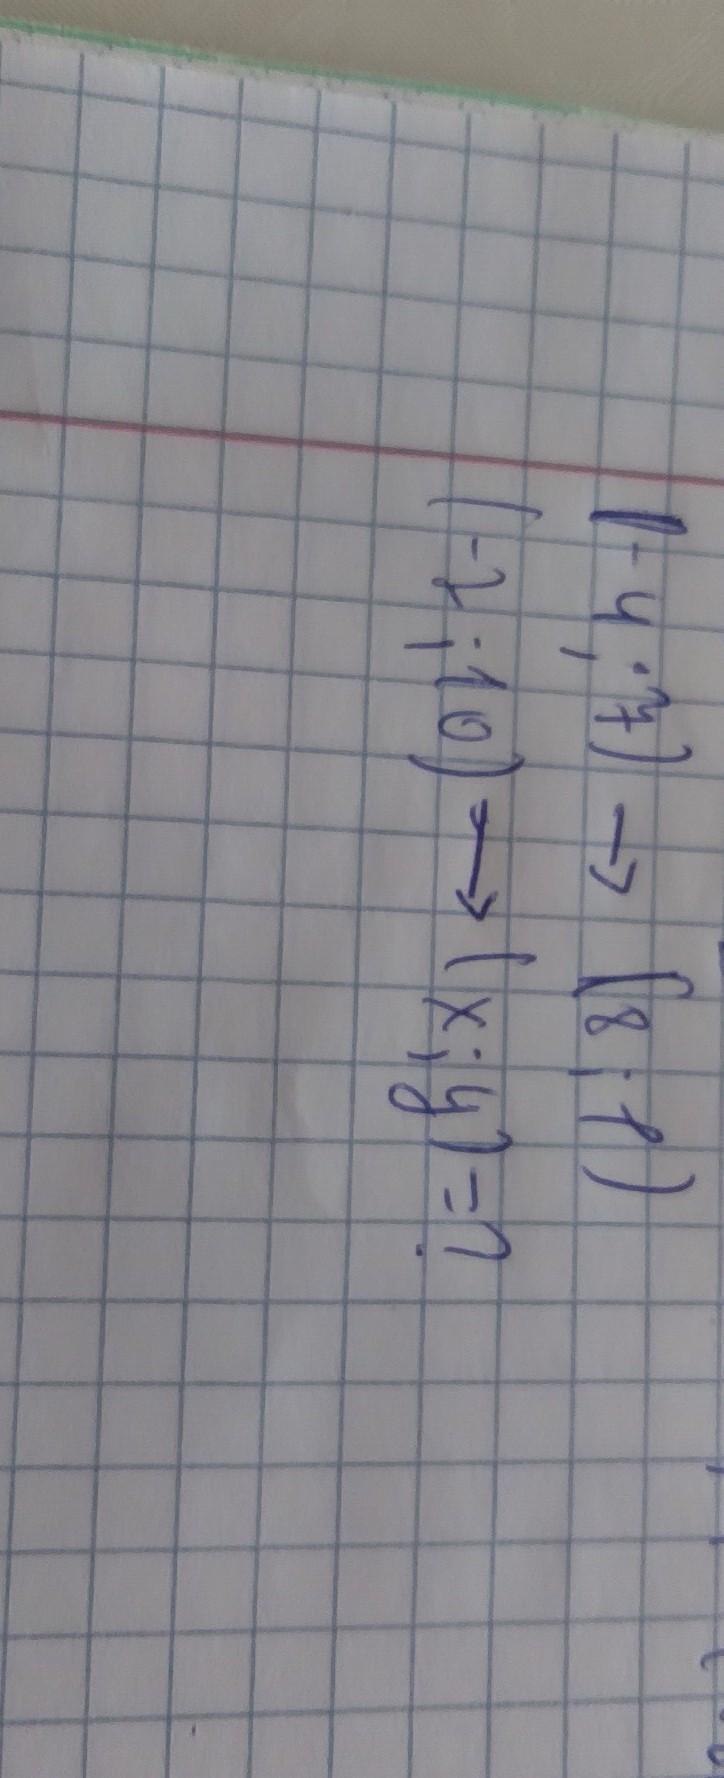 (-4; 7) → (8; 1)
(-2; 10) → (x; y) = ?